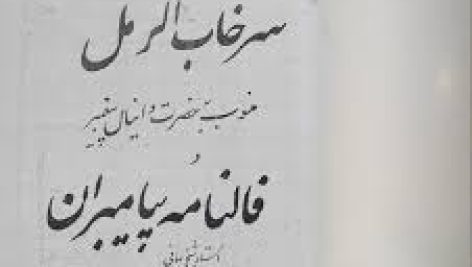 سرخاب الرمل
منسوب بحضرت دانیال پیغمبر
و
فالنامه پیامبران